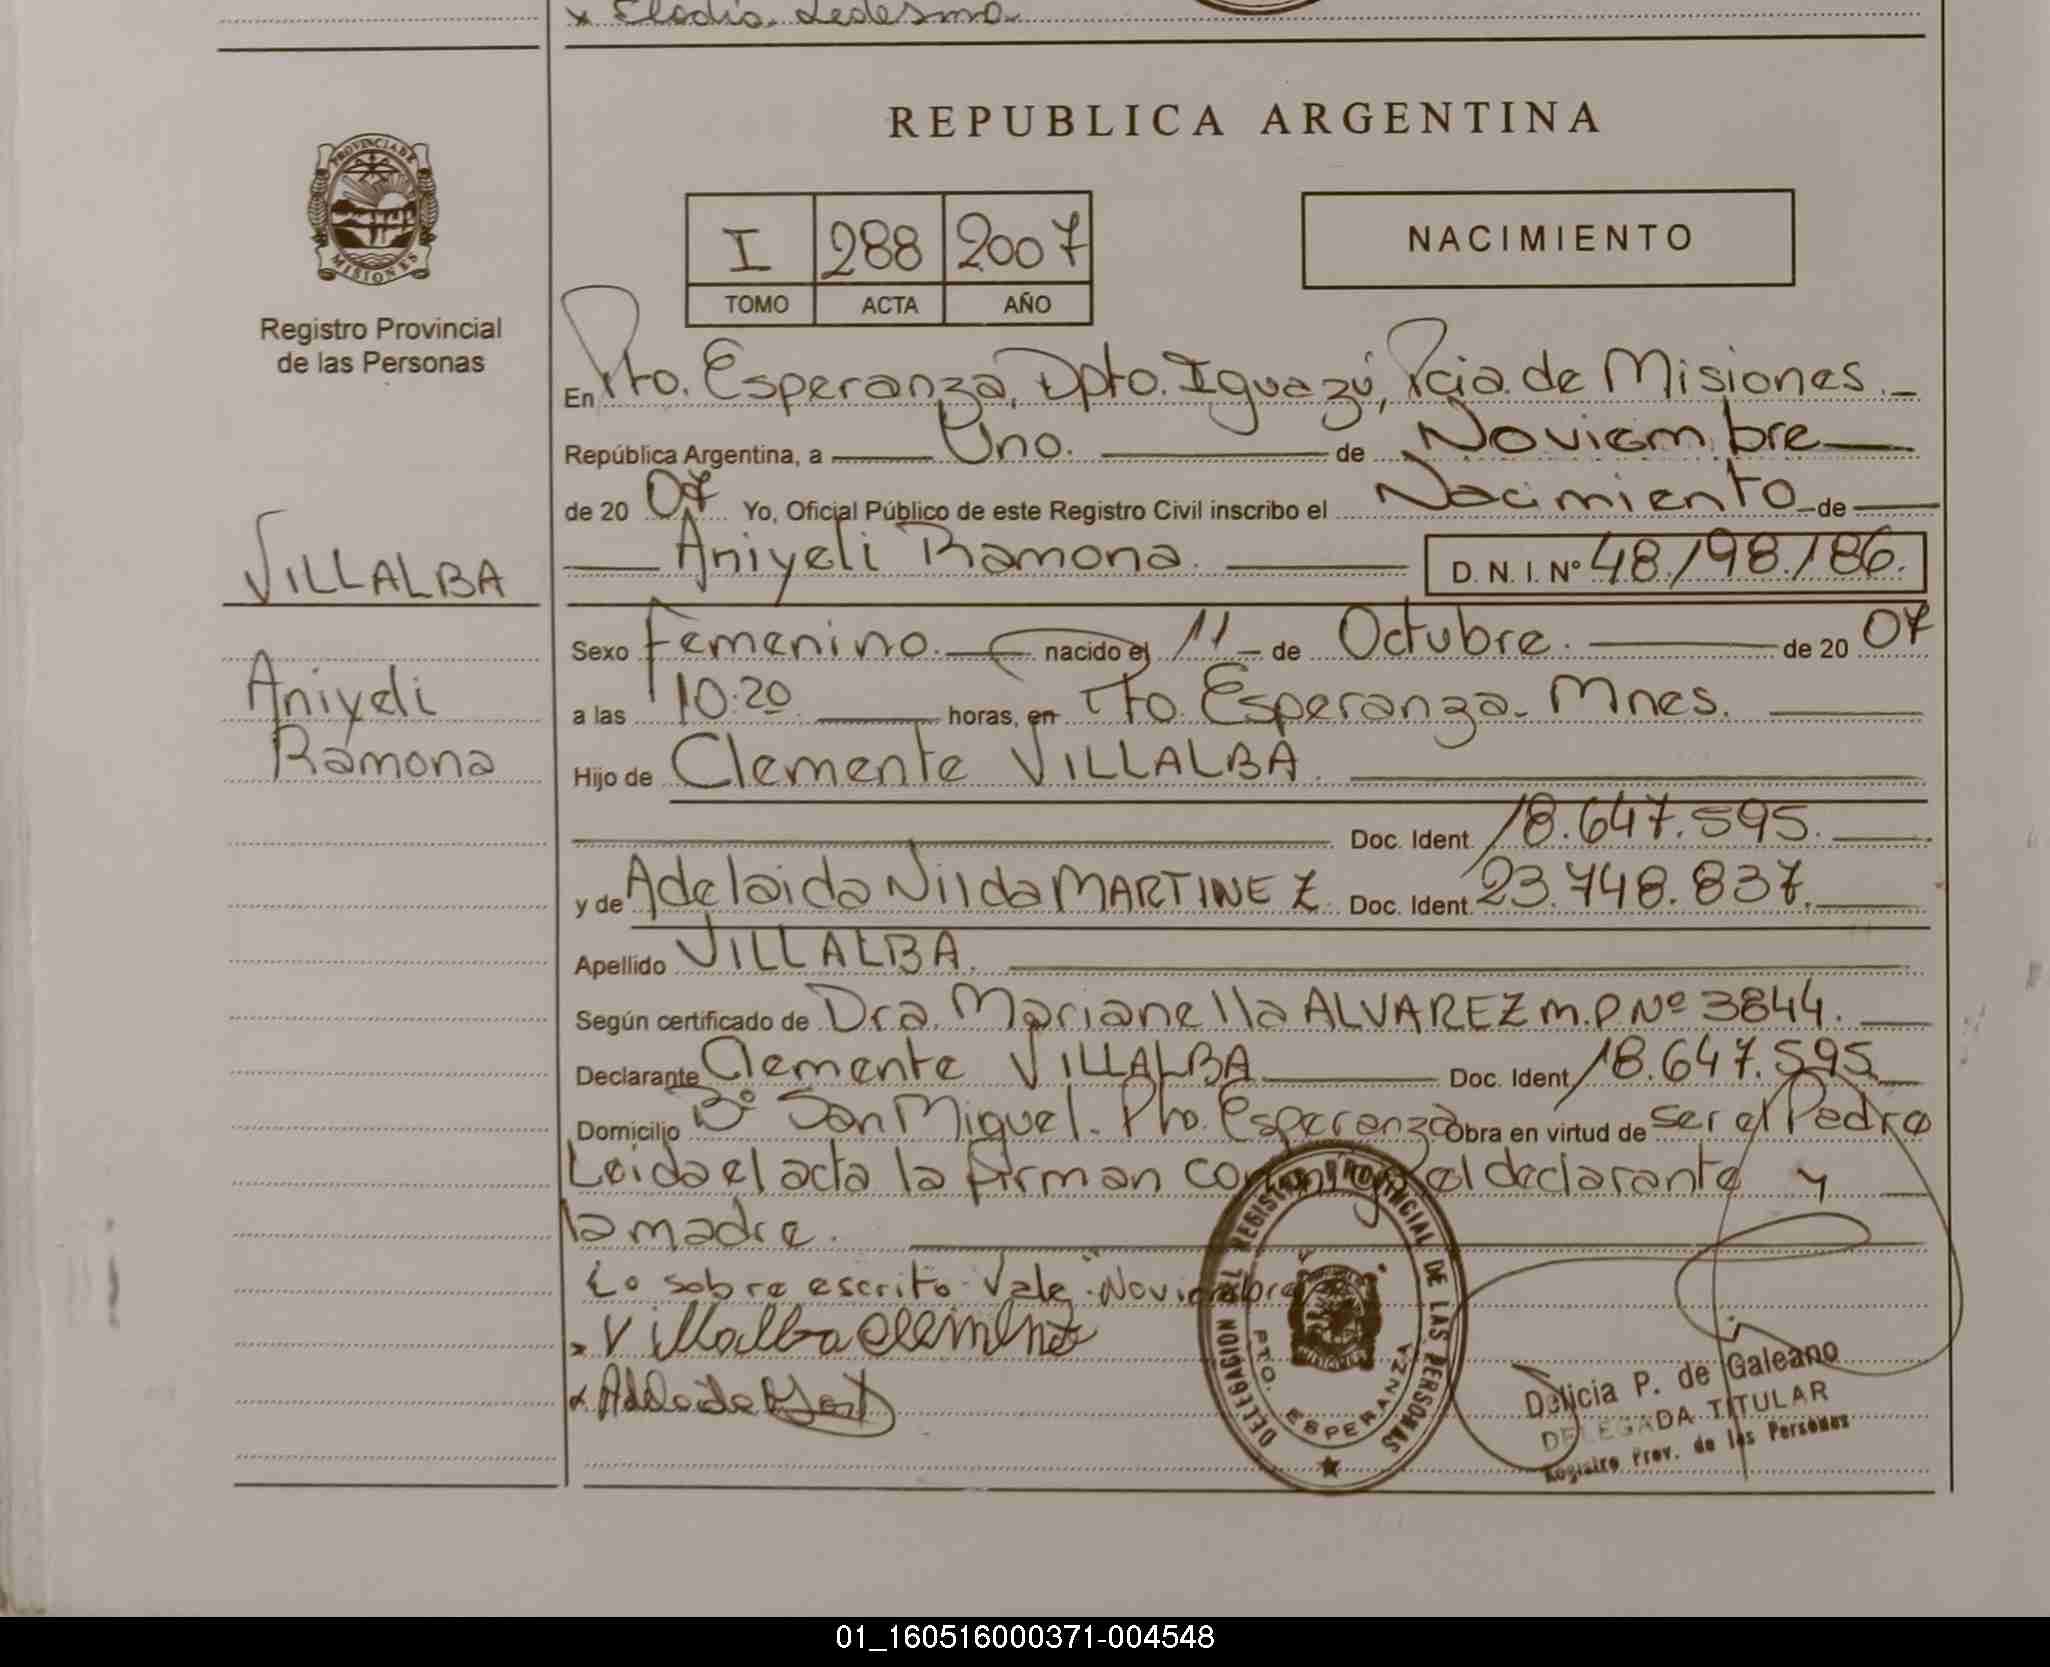 x Elodia Ledesma
REPUBLICA ARGENTINA
PROVINCIA DE
MISIONES
Registro Provincial
de las Personas
I 288 2007
TOMO ACTA AÑO
NACIMIENTO
En Pto. Esperanza, Dpto. Iguazú, Pcia. de Misiones.
República Argentina, a Uno. de Noviembre
de 20 07 Yo, Oficial Público de este Registro Civil inscribo el Nacimiento de
Aniyeli Ramona. D. N. I. Nº 48.198.186.
VILLALBA
Aniyeli
Ramona
Sexo Femenino. nacido el 11 de Octubre. de 20 07
a las 10:20 horas, en Pto. Esperanza - Mnes.
Hijo de Clemente VILLALBA.
Doc. Ident. 18.647.595.
y de Adelaida Nilda MARTINEZ. Doc. Ident. 23.748.837.
Apellido VILLALBA.
Según certificado de Dra. Marianella ALVAREZ M.P Nº 3844.
Declarante Clemente VILLALBA Doc. Ident 18.647.595
Domicilio Bº San Miguel - Pto. Esperanza Obra en virtud de ser el Padre
Leida el acta la firman conmigo el declarante y
la madre.
Lo sobre escrito Vale "Noviembre"
x Villalba Clemente
x Adelaida
DELEGACION DEL REGISTRO PROVINCIAL DE LAS PERSONAS
PTO. ESPERANZA
Delicia P. de Galeano
DELEGADA TITULAR
Registro Prov. de las Personas
01_160516000371-004548